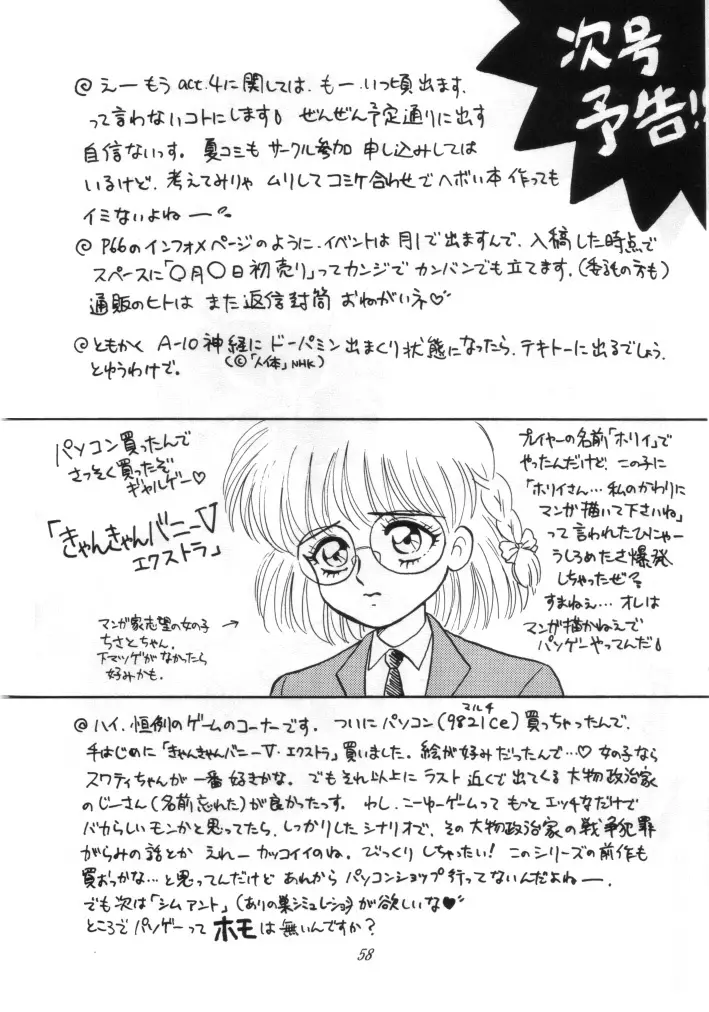 次号
予告!!
@ えーもうact.4に関しては、もー、いつ頃出ます、
って言わないコトにします。ぜんぜん予定通りに出す
自信ないっす。夏コミもサークル参加申し込みしては
いるけど、考えてみりゃ ムリしてコミケ合わせでヘボい本作っても
イミないよねー。
@ P66のインフォメページのように、イベントは月1で出ますんで、入稿した時点で
スペースに「〇月〇日初売り」ってカンジでカンバンでも立てます。(委託の方も)
通販のヒトは また返信封筒 おねがいネ♡
@ ともかく A-10神経に ドーパミン出まくり状態になったら、テキトーに出るでしょう。
(©「人体」NHK)
とゆうわけで。
パソコン買ったんで
さっそく買ったぞ
ギャルゲー♡
「きゃんきゃんバニーV
エクストラ」
マンガ家志望の女の子 →
ちさとちゃん。
下マツゲがなかったら
好みかも。
プレイヤーの名前「ホリイ」で
やったんだけど、この子に
「ホリイさん…私のかわりに
マンガ描いて下さいね」
って言われたひにゃー
うしろめたさ爆発
しちゃったぜ?
すまねえ…オレは
マンガ描かねえで
パソゲーやってんだ
@ ハイ、恒例のゲームのコーナーです。ついにパソコン(9821Ce)買っちゃったんで、
マルチ
手はじめに「きゃんきゃんバニーV・エクストラ」買いました。絵が好みだったんで…♡ 女の子なら
スワティちゃんが一番好きかな。でもそれ以上に ラスト近くで出てくる 大物政治家
のじーさん(名前忘れた)が良かったっす。わし、こーゆーゲームって もっとエッチなだけで
バカらしいモンかと思ってたら、しっかりしたシナリオで、その大物政治家の戦争犯罪
がらみの話とか えれーカッコイイのね。びっくりしちゃったい! このシリーズの前作も
買おっかな…と思ってんだけど あれからパソコンショップ行ってないんだよねー。
でも次は「シムアント」(ありの巣シミュレーション)が欲しいな♥
ところでパソゲーって ホモは無いんですか?
58